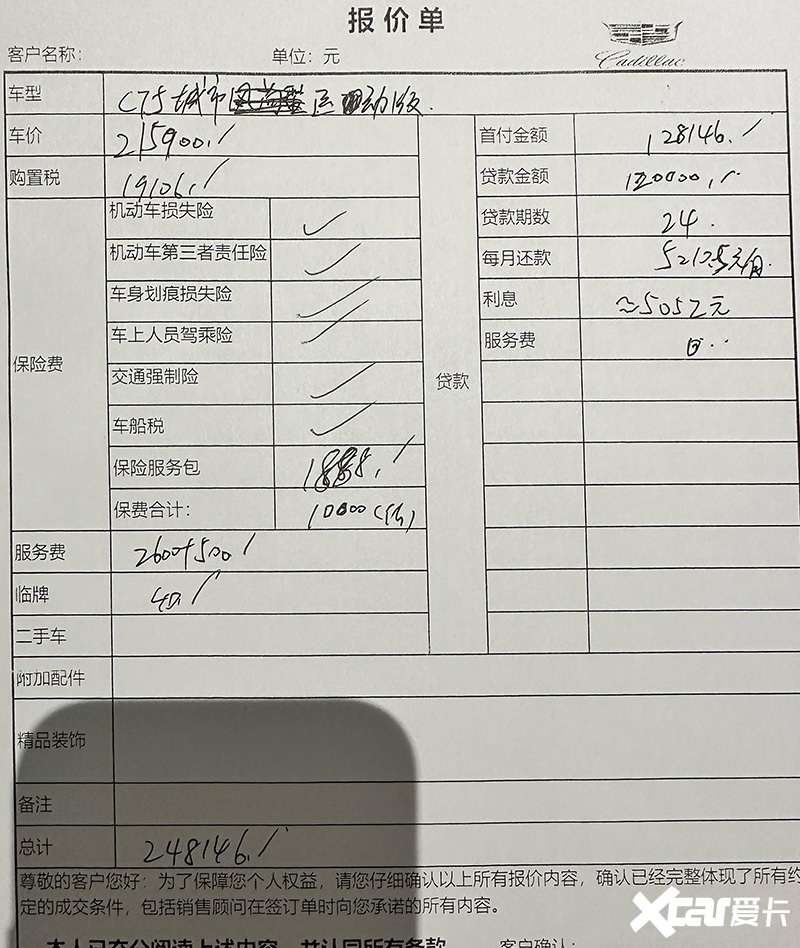 报价单
客户名称:
单位:元
Cadillac
车型 CT5城市 运动版.
车价 215900./
首付金额 128146./
购置税 19106./
贷款金额 120000./
保险费
机动车损失险 ✓
贷款期数 24.
机动车第三者责任险 ✓
每月还款 5210.5元/月.
车身划痕损失险 ✓
利息 ≈5052元
车上人员驾乘险 ✓
服务费
交通强制险 ✓
贷款
车船税 ✓
保险服务包 1888./
保费合计: 10000(估)
服务费 2600+500/
临牌 40./
二手车
附加配件
精品装饰
备注
总计 248146./
尊敬的客户您好:为了保障您个人权益,请您仔细确认以上所有报价内容,确认已经完整体现了所有约
定的成交条件,包括销售顾问在签订单时向您承诺的所有内容。
本人已充分阅读上述内容,并认同所有条款
客户确认:
Xcar爱卡